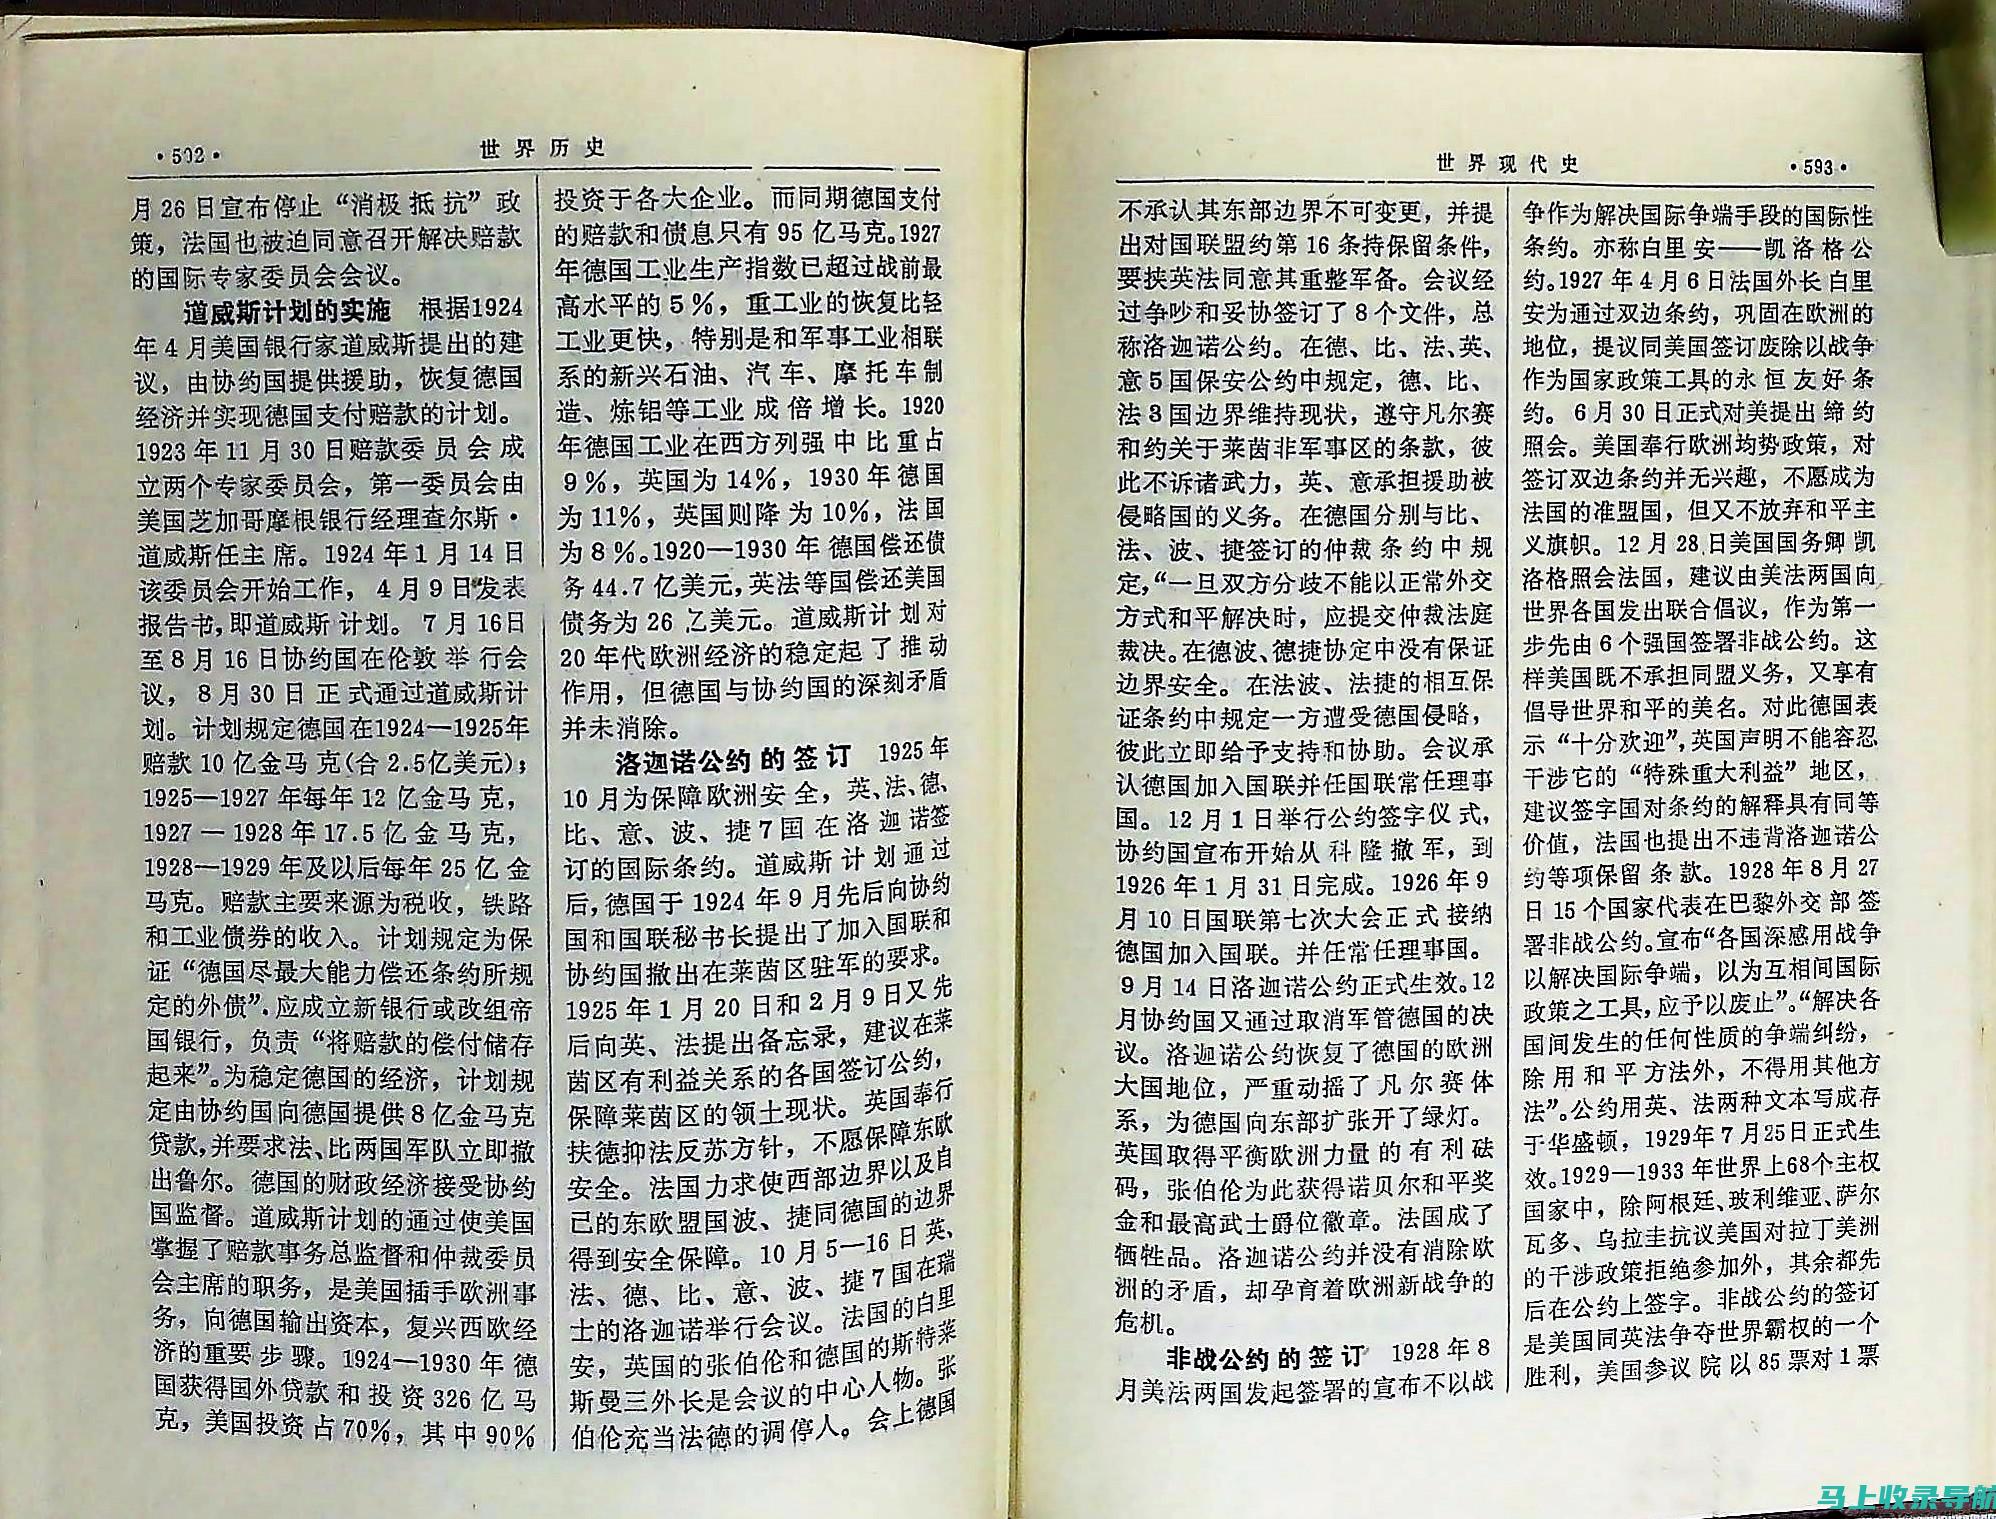 ·502·
世界历史
月26日宣布停止“消极抵抗”政
策，法国也被迫同意召开解决赔款
的国际专家委员会会议。
道威斯计划的实施 根据1924
年4月美国银行家道威斯提出的建
议，由协约国提供援助，恢复德国
经济并实现德国支付赔款的计划。
1923年11月30日赔款委员会成
立两个专家委员会，第一委员会由
美国芝加哥摩根银行经理查尔斯·
道威斯任主席。1924年1月14日
该委员会开始工作，4月9日发表
报告书，即道威斯计划。7月16日
至8月16日协约国在伦敦举行会
议，8月30日正式通过道威斯计
划。计划规定德国在1924—1925年
赔款10亿金马克(合2.5亿美元)；
1925—1927年每年12亿金马克，
1927—1928年17.5亿金马克，
1928—1929年及以后每年25亿金
马克。赔款主要来源为税收，铁路
和工业债券的收入。计划规定为保
证“德国尽最大能力偿还条约所规
定的外债”．应成立新银行或改组帝
国银行，负责“将赔款的偿付储存
起来”。为稳定德国的经济，计划规
定由协约国向德国提供8亿金马克
贷款，并要求法、比两国军队立即撤
出鲁尔。德国的财政经济接受协约
国监督。道威斯计划的通过使美国
掌握了赔款事务总监督和仲裁委员
会主席的职务，是美国插手欧洲事
务，向德国输出资本，复兴西欧经
济的重要步骤。1924—1930年德
国获得国外贷款和投资326亿马
克，美国投资占70%，其中90%
投资于各大企业。而同期德国支付
的赔款和债息只有95亿马克。1927
年德国工业生产指数已超过战前最
高水平的5%，重工业的恢复比轻
工业更快，特别是和军事工业相联
系的新兴石油、汽车、摩托车制
造、炼铝等工业成倍增长。1920
年德国工业在西方列强中比重占
9%，英国为14%，1930年德国
为11%，英国则降为10%，法国
为8%。1920—1930年德国偿还债
务44.7亿美元，英法等国偿还美国
债务为26亿美元。道威斯计划对
20年代欧洲经济的稳定起了推动
作用，但德国与协约国的深刻矛盾
并未消除。
洛迦诺公约的签订 1925年
10月为保障欧洲安全，英、法、德、
比、意、波、捷7国在洛迦诺签
订的国际条约。道威斯计划通过
后，德国于1924年9月先后向协约
国和国联秘书长提出了加入国联和
协约国撤出在莱茵区驻军的要求。
1925年1月20日和2月9日又先
后向英、法提出备忘录，建议在莱
茵区有利益关系的各国签订公约，
保障莱茵区的领土现状。英国奉行
扶德抑法反苏方针，不愿保障东欧
安全。法国力求使西部边界以及自
己的东欧盟国波、捷同德国的边界
得到安全保障。10月5—16日英、
法、德、比、意、波、捷7国在瑞
士的洛迦诺举行会议。法国的白里
安，英国的张伯伦和德国的斯特莱
斯曼三外长是会议的中心人物。张
伯伦充当法德的调停人。会上德国
世界现代史
·593·
不承认其东部边界不可变更，并提
出对国联盟约第16条持保留条件，
要挟英法同意其重整军备。会议经
过争吵和妥协签订了8个文件，总
称洛迦诺公约。在德、比、法、英、
意5国保安公约中规定，德、比、
法3国边界维持现状，遵守凡尔赛
和约关于莱茵非军事区的条款，彼
此不诉诸武力，英、意承担援助被
侵略国的义务。在德国分别与比、
法、波、捷签订的仲裁条约中规
定，“一旦双方分歧不能以正常外交
方式和平解决时，应提交仲裁法庭
裁决。在德波、德捷协定中没有保证
边界安全。在法波、法捷的相互保
证条约中规定一方遭受德国侵略，
彼此立即给予支持和协助。会议承
认德国加入国联并任国联常任理事
国。12月1日举行公约签字仪式，
协约国宣布开始从科隆撤军，到
1926年1月31日完成。1926年9
月10日国联第七次大会正式接纳
德国加入国联。并任常任理事国。
9月14日洛迦诺公约正式生效。12
月协约国又通过取消军管德国的决
议。洛迦诺公约恢复了德国的欧洲
大国地位，严重动摇了凡尔赛体
系，为德国向东部扩张开了绿灯。
英国取得平衡欧洲力量的有利砝
码，张伯伦为此获得诺贝尔和平奖
金和最高武士爵位徽章。法国成了
牺牲品。洛迦诺公约并没有消除欧
洲的矛盾，却孕育着欧洲新战争的
危机。
非战公约的签订 1928年8
月美法两国发起签署的宣布不以战
争作为解决国际争端手段的国际性
条约。亦称白里安——凯洛格公
约。1927年4月6日法国外长白里
安为通过双边条约，巩固在欧洲的
地位，提议同美国签订废除以战争
作为国家政策工具的永恒友好条
约。6月30日正式对美提出缔约
照会。美国奉行欧洲均势政策，对
签订双边条约并无兴趣，不愿成为
法国的准盟国，但又不放弃和平主
义旗帜。12月28日美国国务卿凯
洛格照会法国，建议由美法两国向
世界各国发出联合倡议，作为第一
步先由6个强国签署非战公约。这
样美国既不承担同盟义务，又享有
倡导世界和平的美名。对此德国表
示“十分欢迎”，英国声明不能容忍
干涉它的“特殊重大利益”地区，
建议签字国对条约的解释具有同等
价值，法国也提出不违背洛迦诺公
约等项保留条款。1928年8月27
日15个国家代表在巴黎外交部签
署非战公约。宣布“各国深感用战争
以解决国际争端，以为互相间国际
政策之工具，应予以废止”。“解决各
国间发生的任何性质的争端纠纷，
除用和平方法外，不得用其他方
法”。公约用英、法两种文本写成存
于华盛顿，1929年7月25日正式生
效。1929—1933年世界上68个主权
国家中，除阿根廷、玻利维亚、萨尔
瓦多、乌拉圭抗议美国对拉丁美洲
的干涉政策拒绝参加外，其余都先
后在公约上签字。非战公约的签订
是美国同英法争夺世界霸权的一个
胜利，美国参议院以85票对1票
马上收录导航